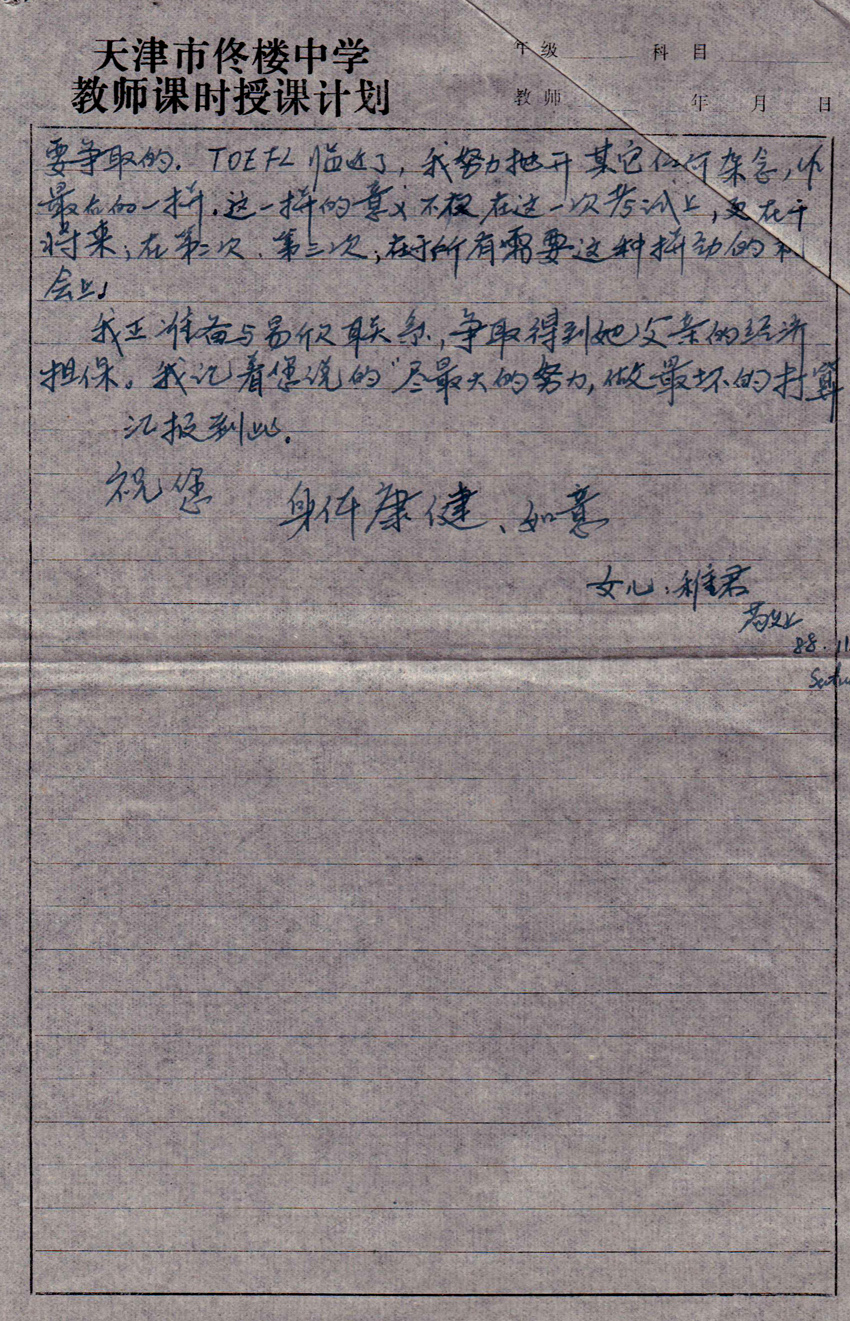 天津市佟楼中学
教师课时授课计划
年级 科目
教师 年 月 日
要争取的. TOEFL 临近了, 我努力抛开其它任何杂念, 作
最后的一拼. 这一拼的意义不仅在这一次考试上, 更在于
将来; 在第二次、第三次; 在于所有需要这种拼劲的机
会上。
我正准备与易欣联系, 争取得到她父亲的经济
担保。我记着您说的"尽最大的努力, 做最坏的打算
汇报到此.
祝您
身体康健、如意
女儿: 稚君
敬上
88.11